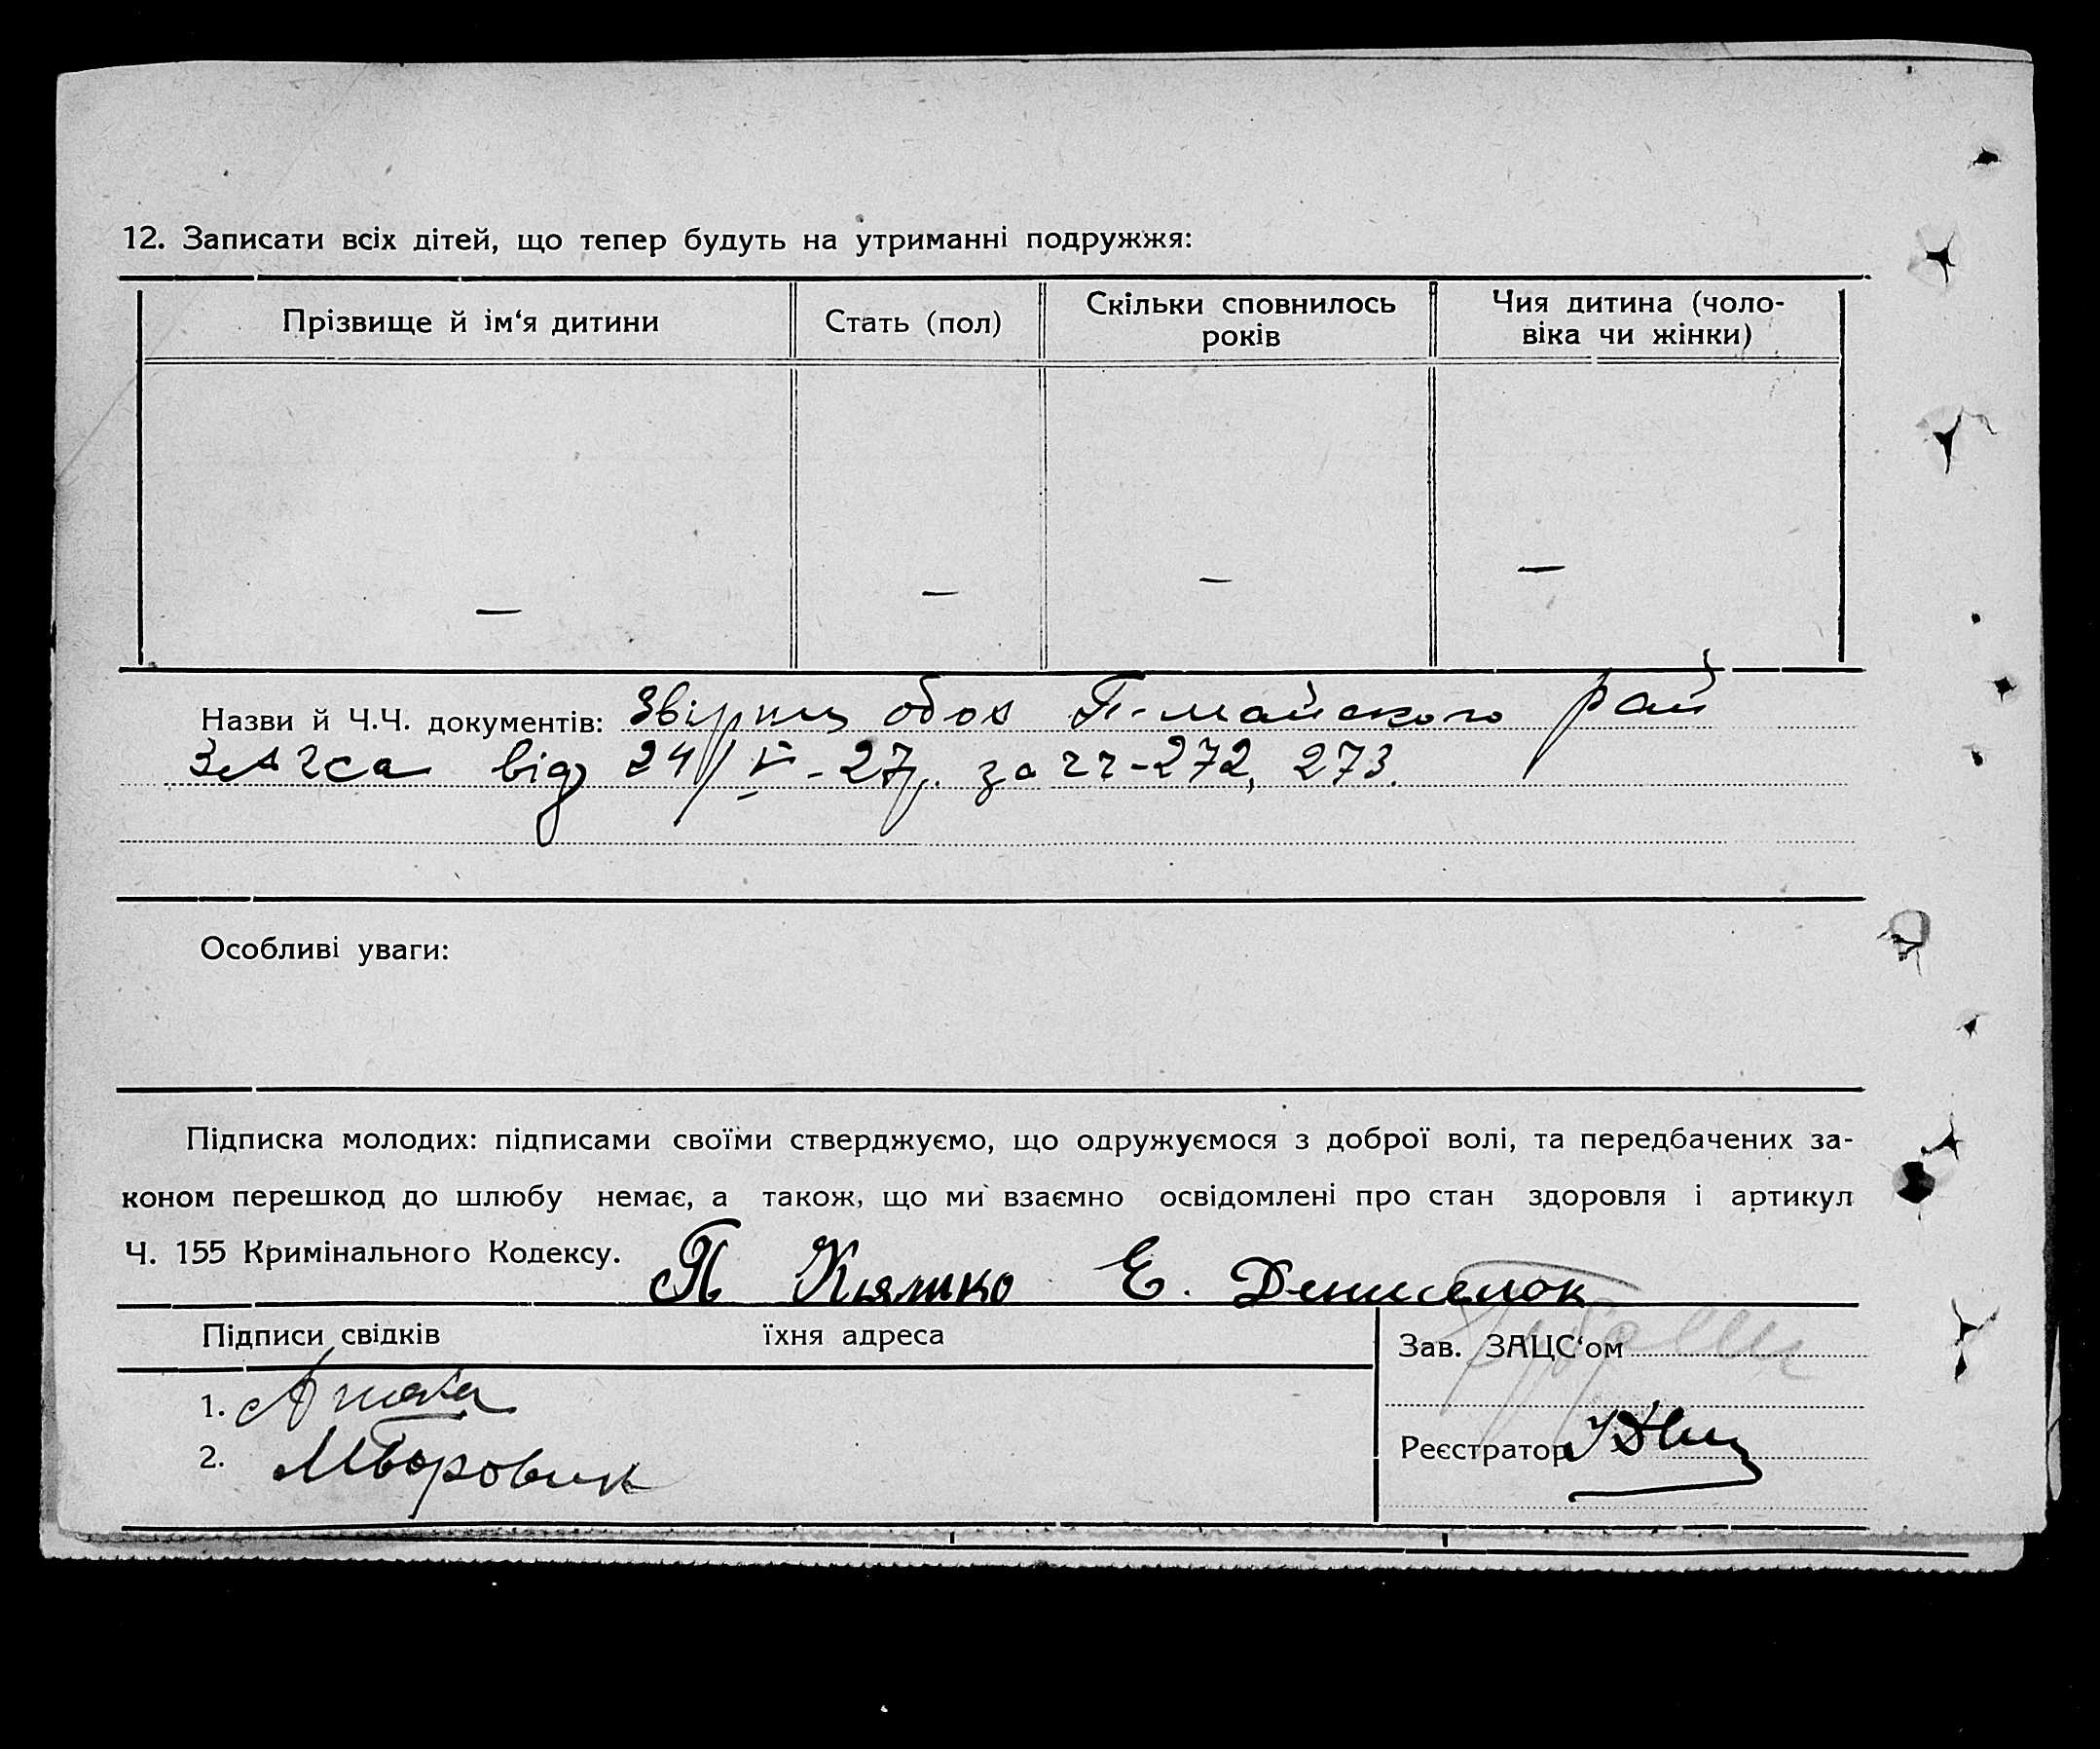 12. Записати всіх дітей, що тепер будуть на утриманні подружжя:
Прізвище й ім‘я дитини
Стать (пол)
Скільки сповнилось
років
Чия дитина (чоло-
віка чи жінки)
— — — —
Назви й Ч.Ч. документів: обох П-майского рай
ЗАГСа від 24/V-27р. за чч-272, 273.
Особливі уваги:
Підписка молодих: підписами своїми стверджуємо, що одружуємося з доброї волі, та передбачених за-
коном перешкод до шлюбу немає, а також, що ми взаємно освідомлені про стан здоровля і артикул
Ч. 155 Кримінального Кодексу. П Кляшко Е.
Підписи свідків їхня адреса
Зав. ЗАЦС‘ом
1.
2. МБоровик
Реєстратор